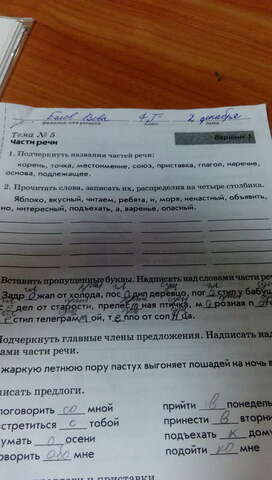 Вова 4 Г 2 декабря
Тема № 5 Вариант 1
Части речи
1. Подчеркнуть названия частей речи:
корень, точка, местоимение, союз, приставка, глагол, наречие,
основа, подлежащее.
2. Прочитать слова, записать их, распределив на четыре столбика.
Яблоко, вкусный, читаем, ребята, и, моря, ненастный, объявить,
но, интересный, подъехать, а, варенье, опасный.
Вставить пропущенные буквы. Надписать над словами части ре
Задр о жал от холода, пос а дил деревцо, пог о стил у бабу
дел от старости, прелес т ная птичка, м о розная п
стил телеграм м ой, т е пло от сол н ца.
Подчеркнуть главные члены предложения. Надписать над
ами части речи.
жаркую летнюю пору пастух выгоняет лошадей на ночь в
писать предлоги.
поговорить со мной прийти в понедель
встретиться с тобой принести в вторни
умать о осени подъехать к дому
оворить обо мне подойти ко мне
и приставки